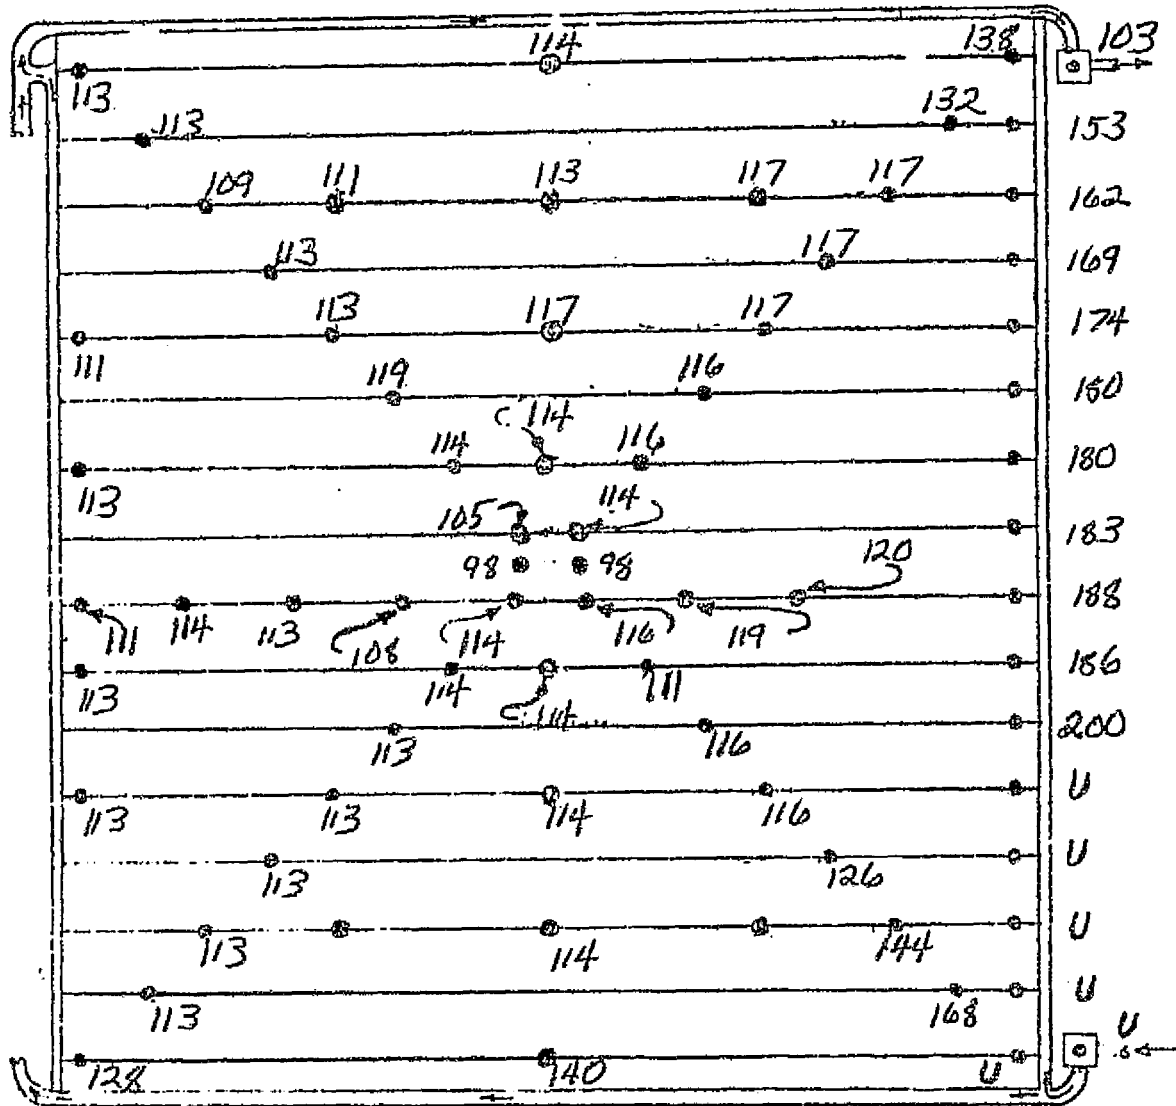 114 138 103
113
113 132 153
109 111 113 117 117 162
113 117 169
113 117 117 174
111
119 116 180
114 114 116 180
113
105 114 183
98 98 120
188
111 114 113 108 114 116 119
186
113 114 111
114
200
113 116
U
113 113 114 116
U
113 126
U
113 114 144
U
113 168
U
128 140 U